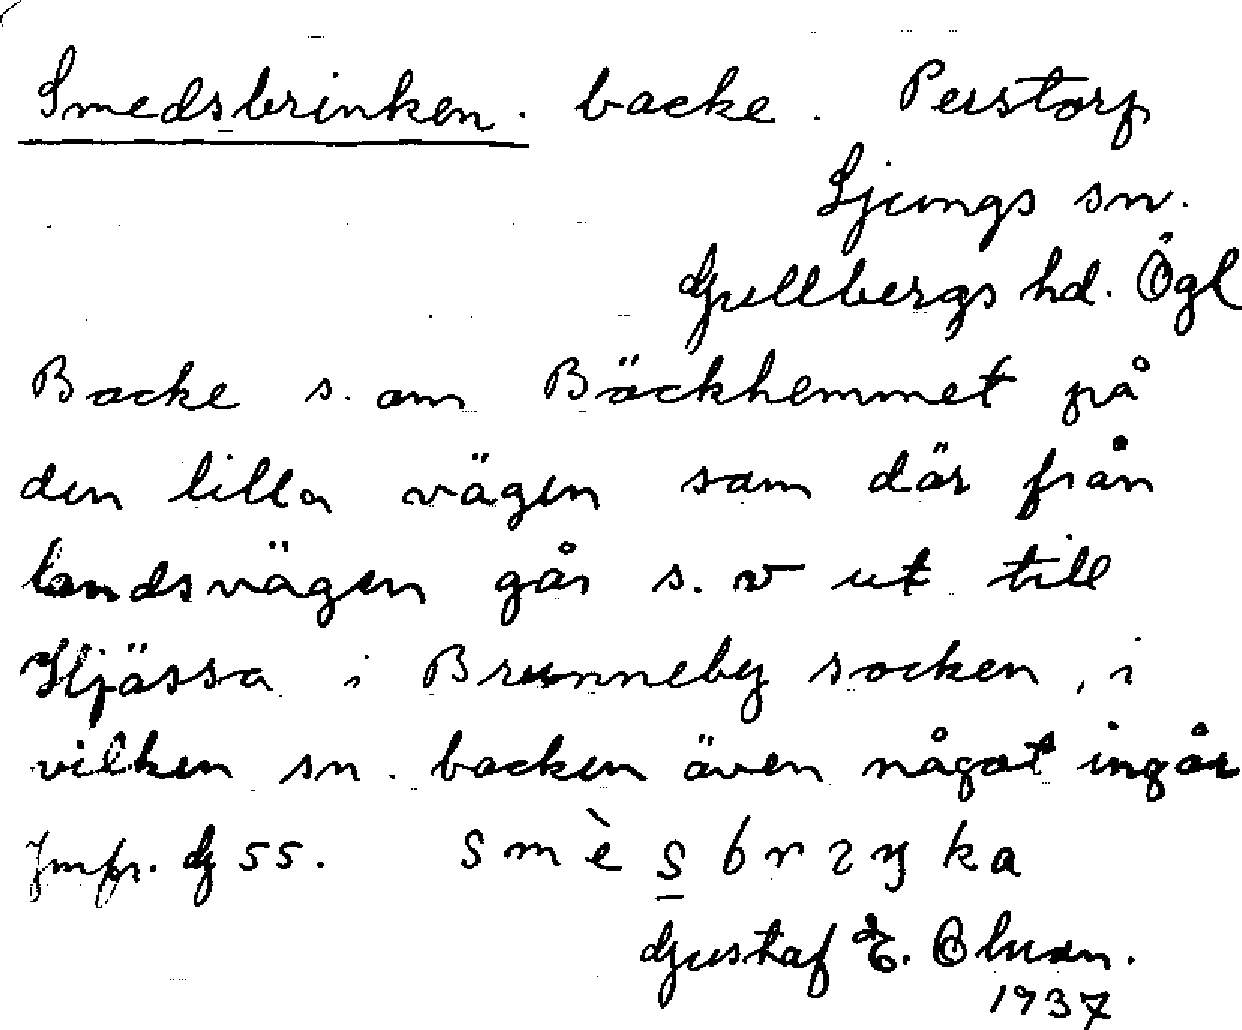 Smedsbrinken. backe. Perstorp
Ljungs sn.
Gullbergs hd. Ögl
Backe s. om Bäckhemmet på
den lilla vägen som där från
landsvägen går s.v ut till
Hjässa i Brunneby socken, i
vilken sn. backen även något ingår
Jmfr. G 55. smèsbrıŋka
Gustaf E.
1937